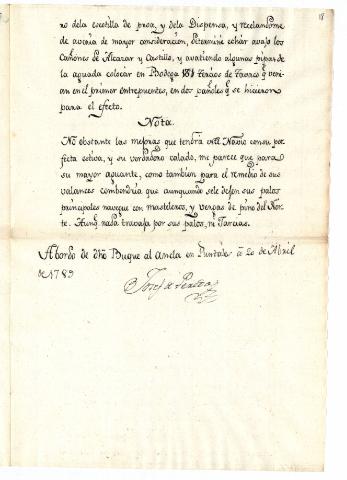 18
ro dela escotilla de proa, y dela Dispensa, y recelandome
de averia de mayor consideracion, determiné echár avajo los
Cañones de Alcazar y Castillo, y avatiendo algunas pipas de
la aguada colocár en Bodega 181 Feraos de Tavaco q.e veni-
an en el primer entrepuentes, en dos pañoles q.e se hicieron
para el efecto.
Nota.
No obstante las mejoras que tendrá este Navio consu per-
fecta estiva, y su verdadero calado, me parece que para
su mayor aguante, como tambien para el remedio de sus
valances combendria que aunquando sele dejen sus palos
principales navegue con masteleros, y vergas de pino del Nor-
te. Aunq.e nada travaja por sus palos, ni Jarcias.
Abordo de dho Buque al ancla en Puntales á 20 de Abril
de 1789